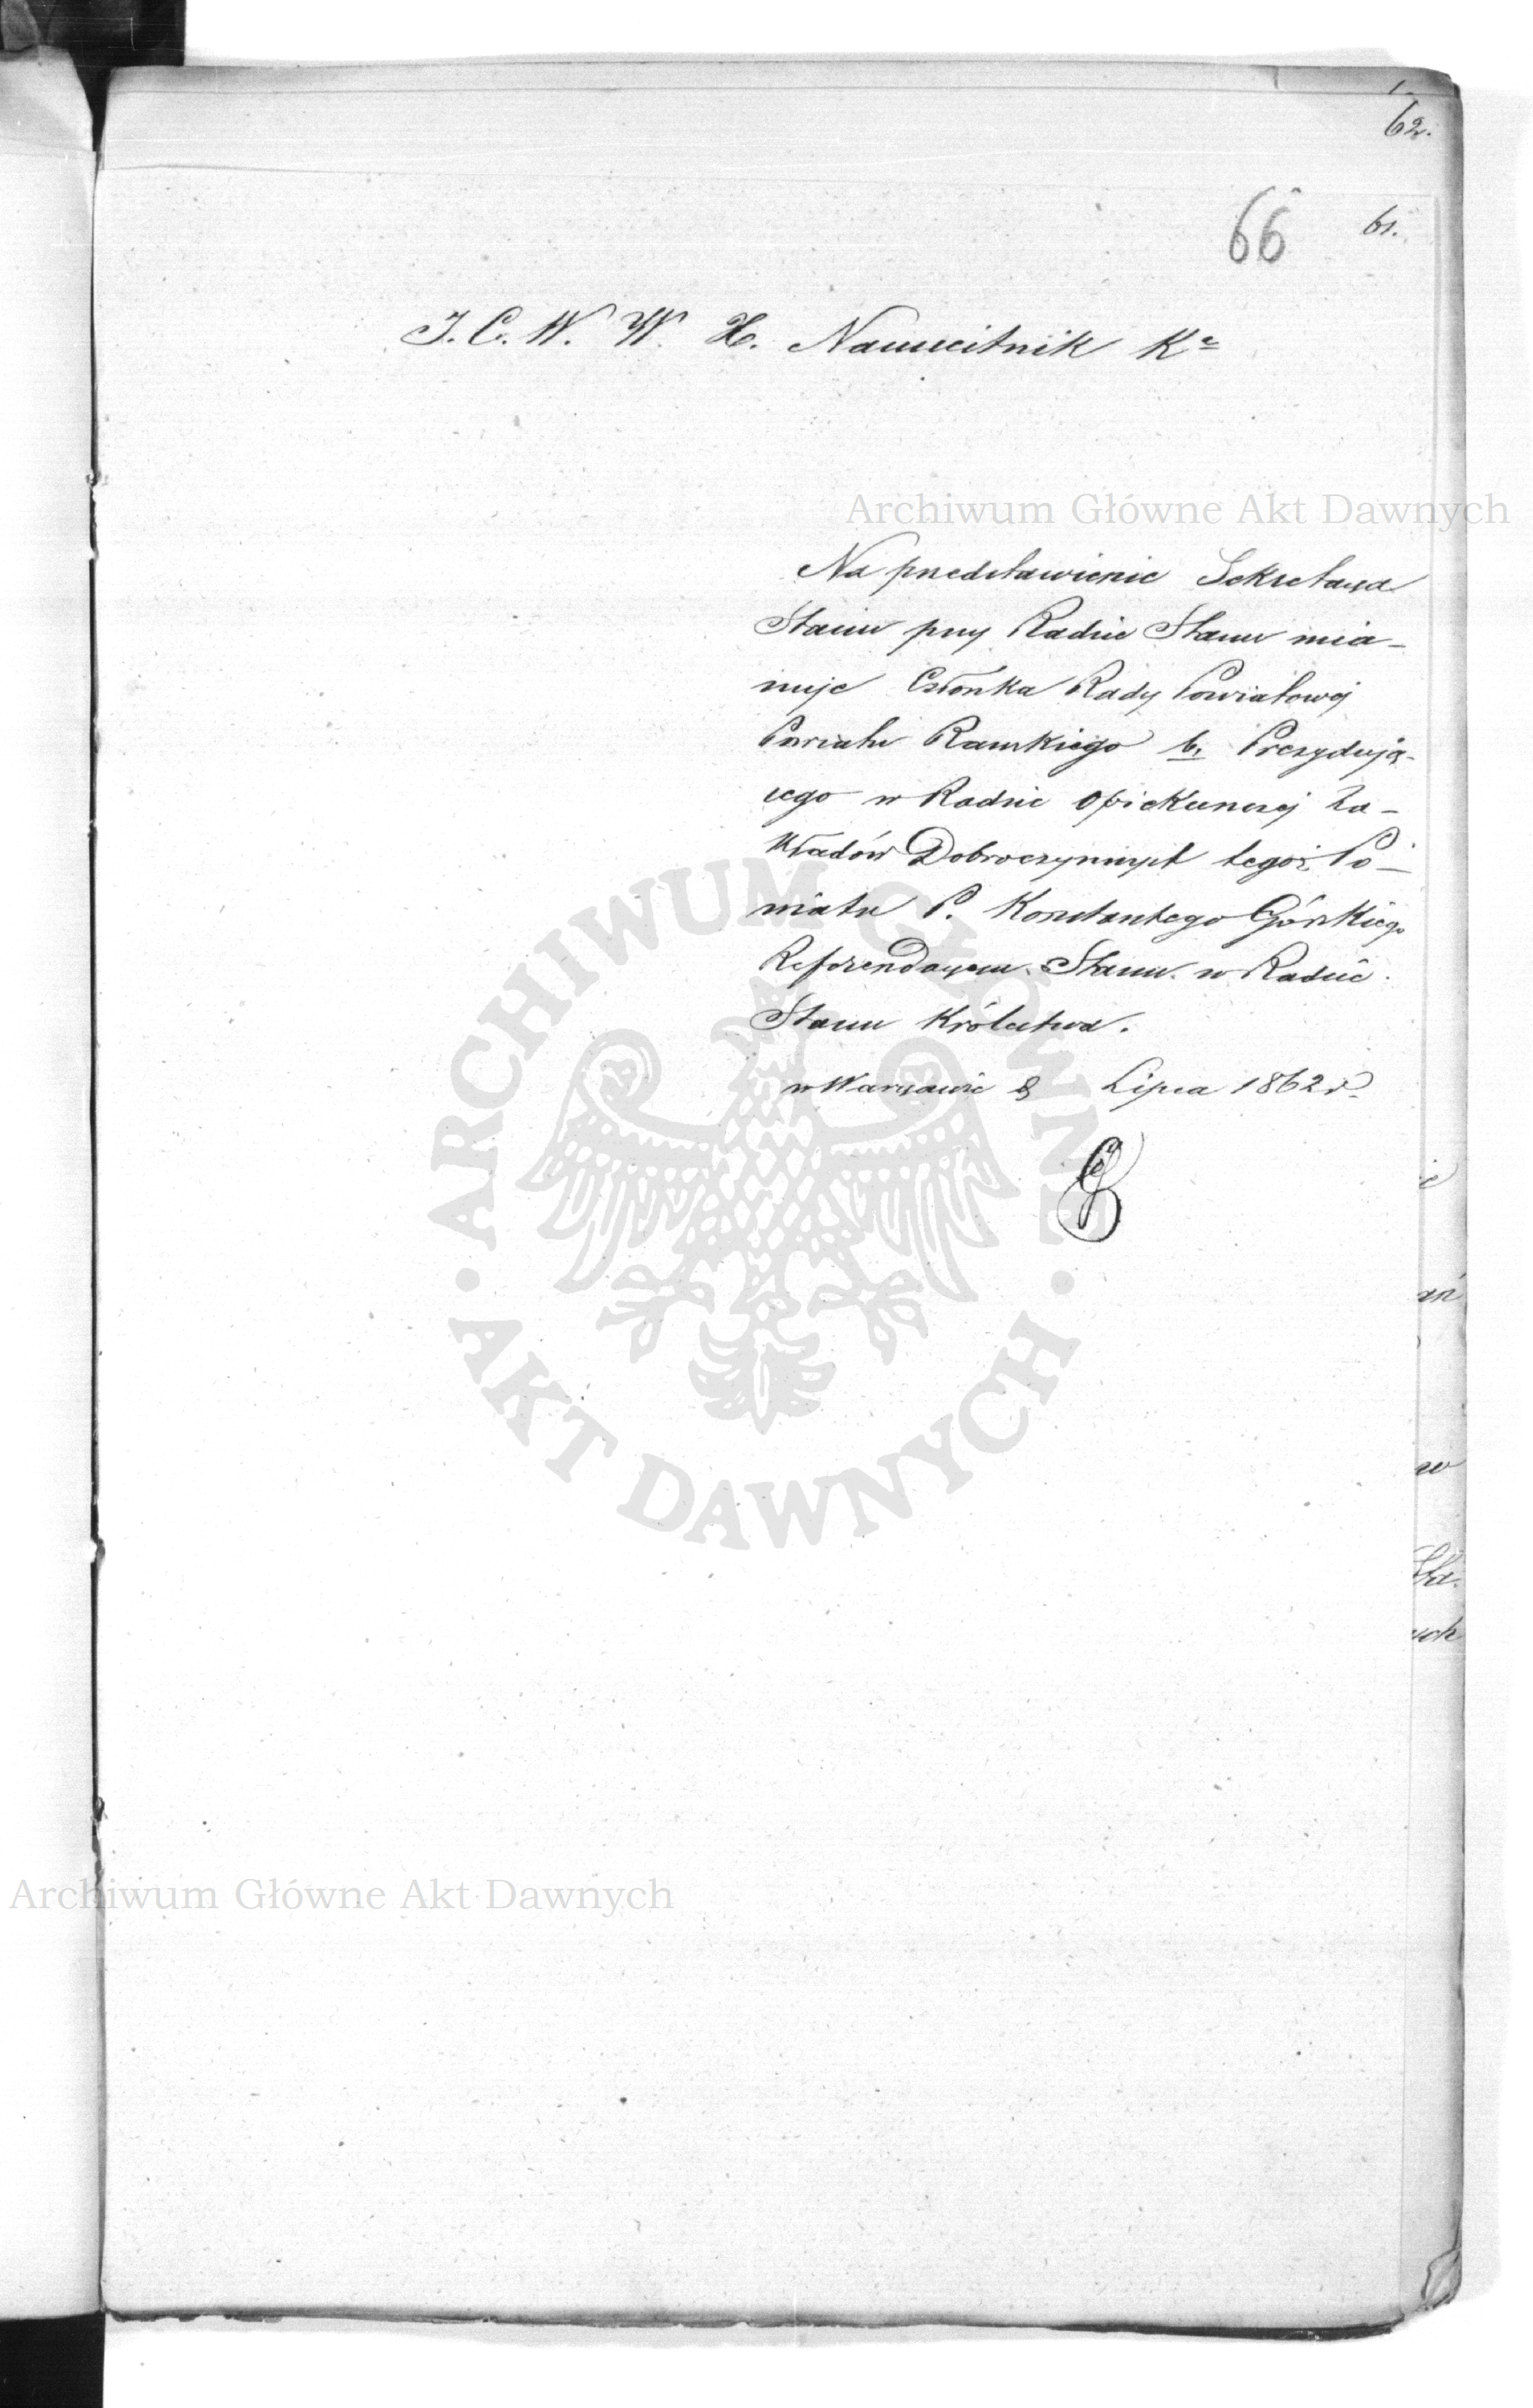 62.
66
61.
J. C. W. W. X. Namiestnik Kr
Archiwum Główne Akt Dawnych
Na przedstawienie Sekretarza
Stanu przy Radzie Stanu mia-
nuje Członka Rady Powiatowej
Powiatu Rawskiego b. Prezydują-
cego w Radzie Opiekunczej Za-
kładów Dobroczynnych tegoż Po-
wiatu P. Konstantego Górskiego
Referendarzem Stanu w Radzie
Stanu Królestwa.
w Warszawie Lipca 1862 r.
ARCHIWUM GŁÓWNE
AKT DAWNYCH
Archiwum Główne Akt Dawnych